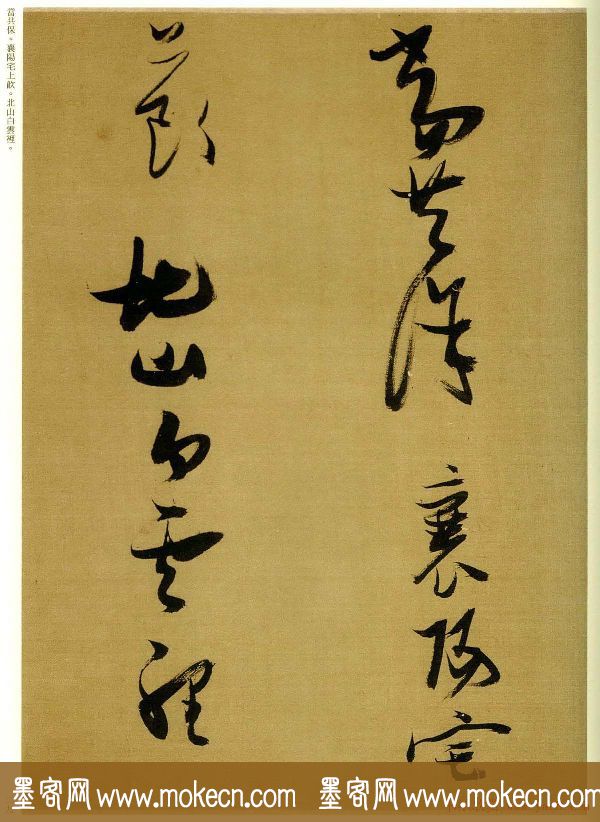 當共保。襄陽宅上飲。北山白雲裡。
當共保襄陽宅
上飲北山白雲裡
墨客网 www.mokecn.com 墨客网 www.mokecn.com